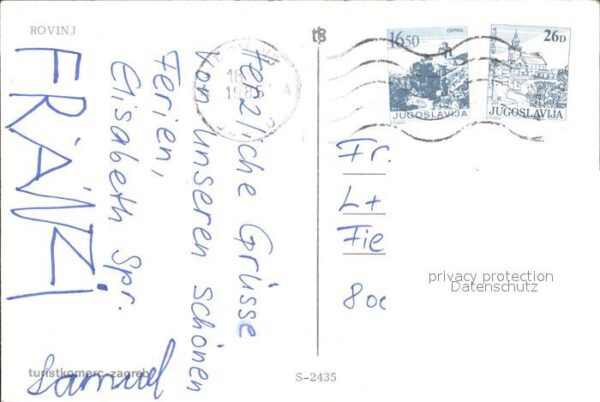 ROVINJ
Herzliche Grüsse
von unseren schönen
Ferien,
Elisabeth Spr.
FRÄNZI
Samuel
turistkomerc-zagreb
S-2435
16.50
JUGOSLAVIJA
26D
JUGOSLAVIJA
Fr.
L+
Fie
privacy protection
Datenschutz